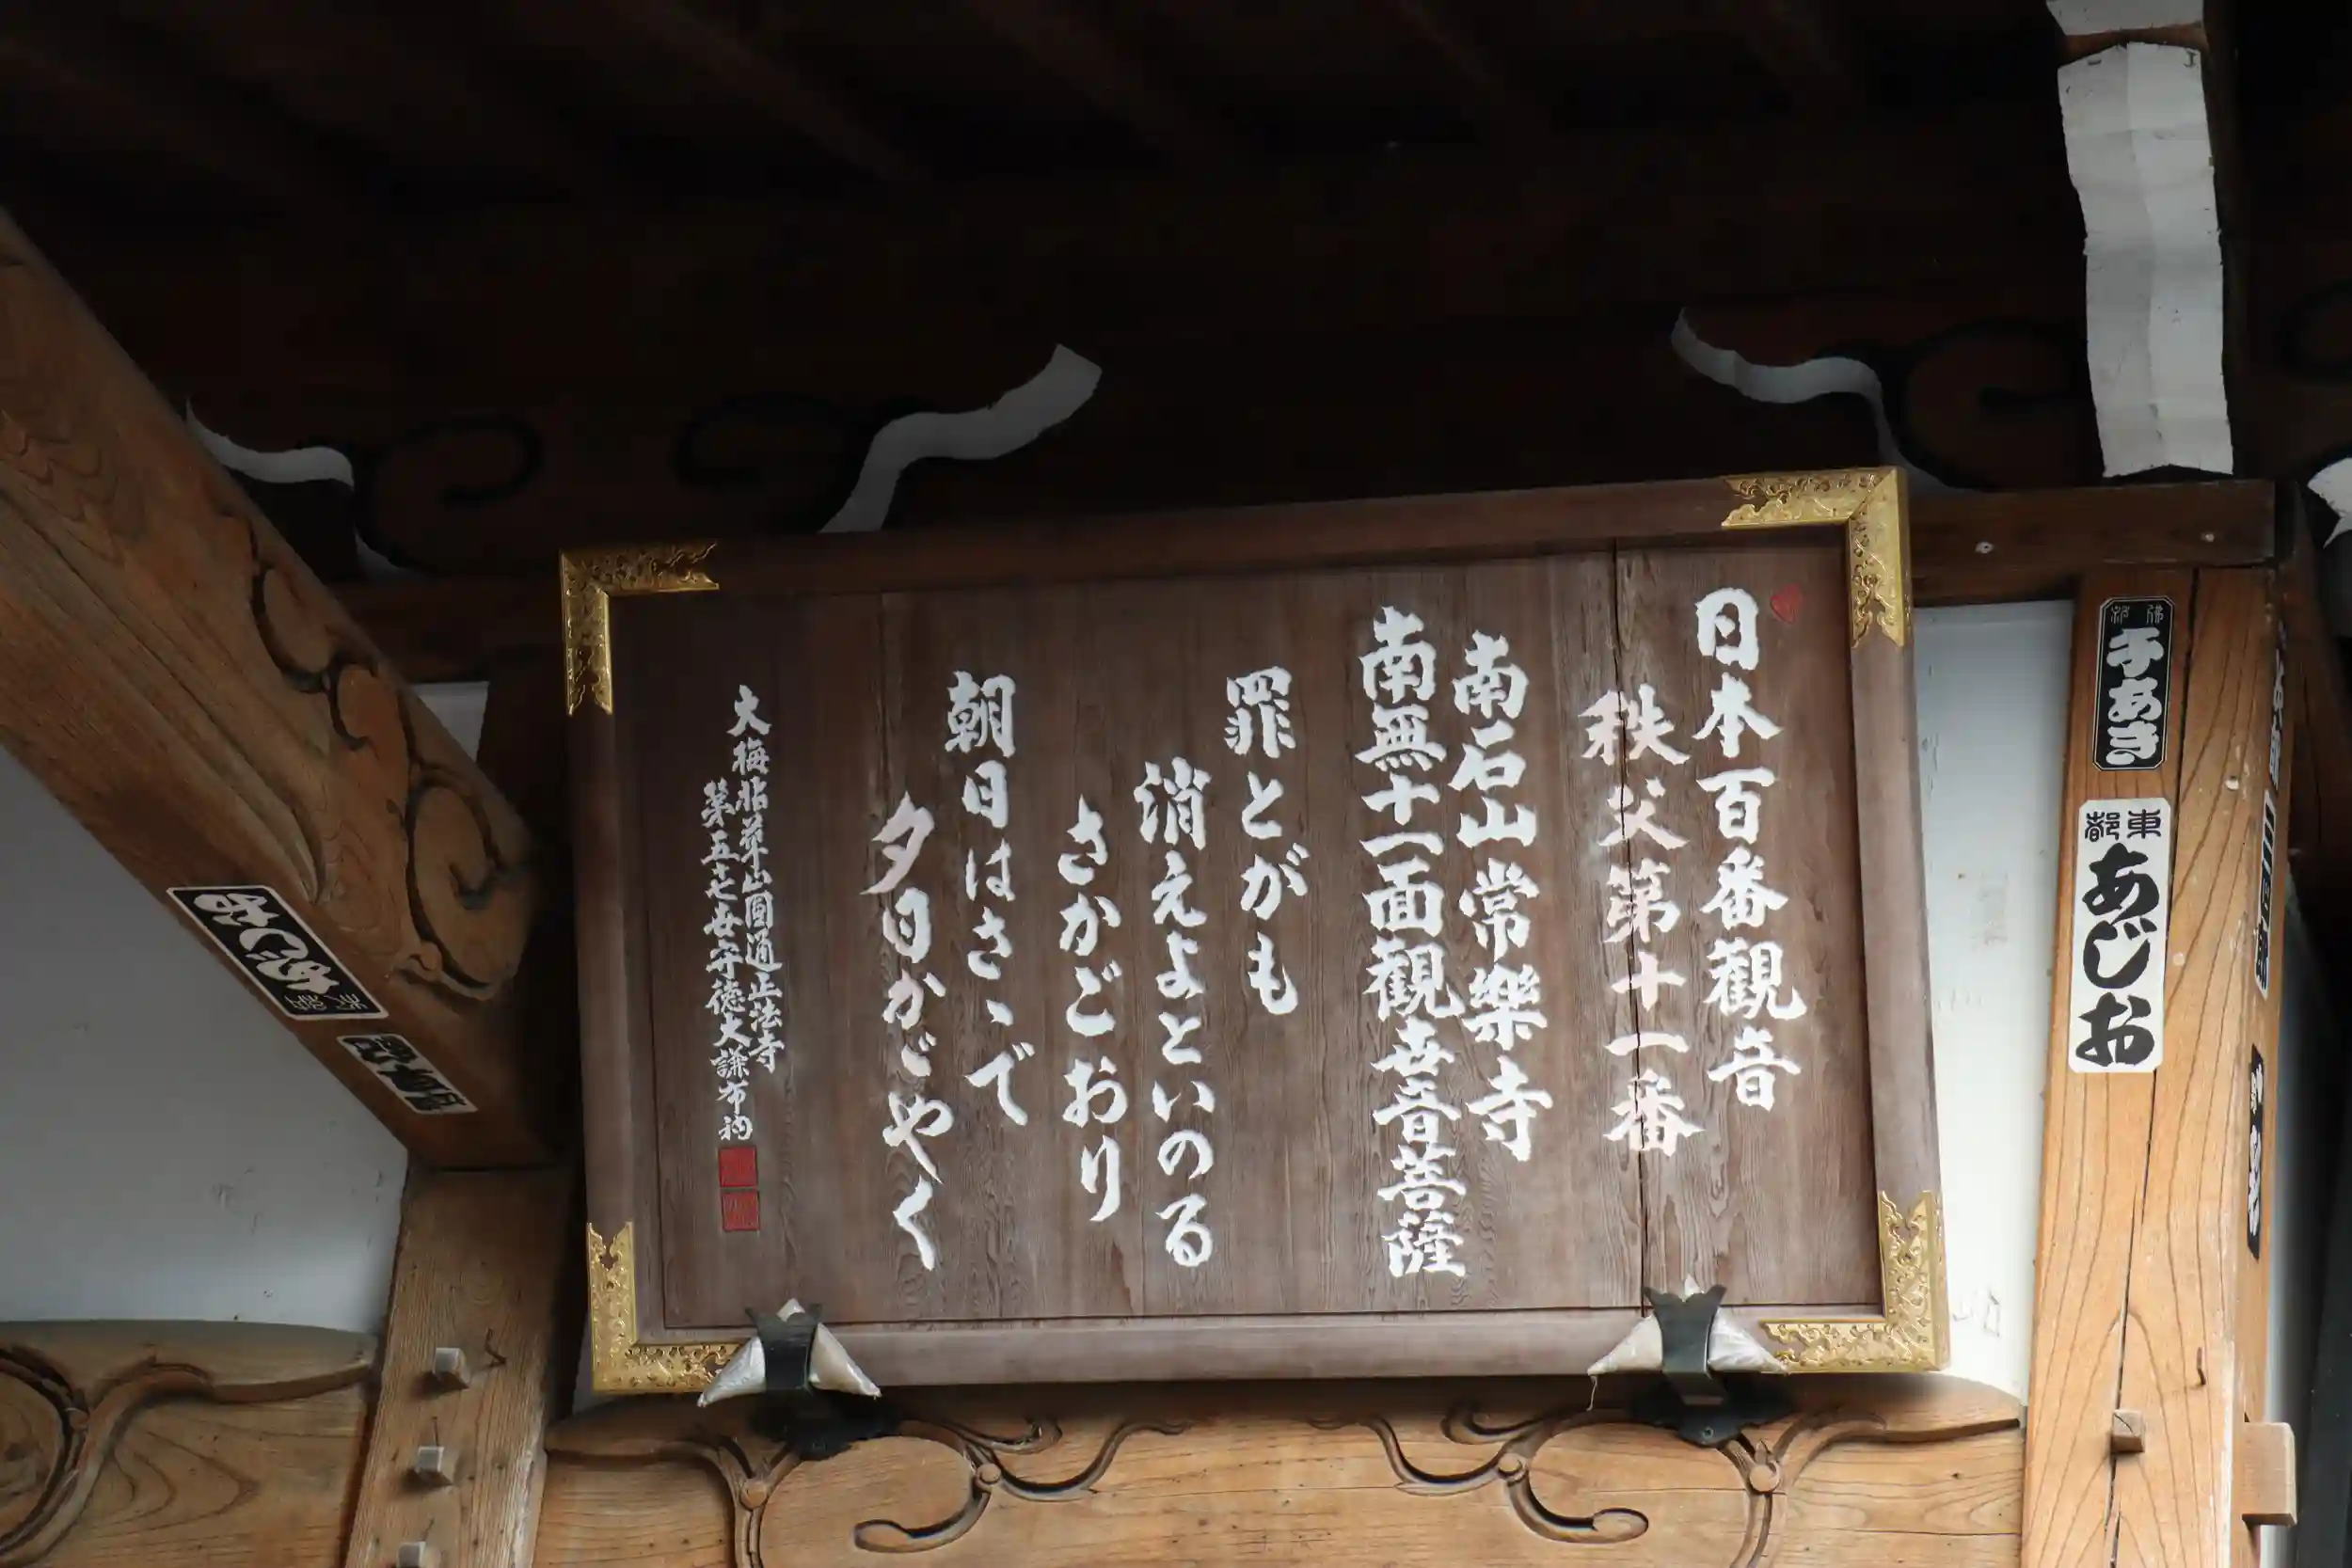 日本百番觀音
秩父第十一番
南石山常樂寺
南無十一面観世音菩薩
罪とがも
消えよといのる
さかごおり
朝日はさゝで
夕日かゞやく
大梅拈華山圓通正法寺
第五十七世守徳大謙
手あき
東都
あじお